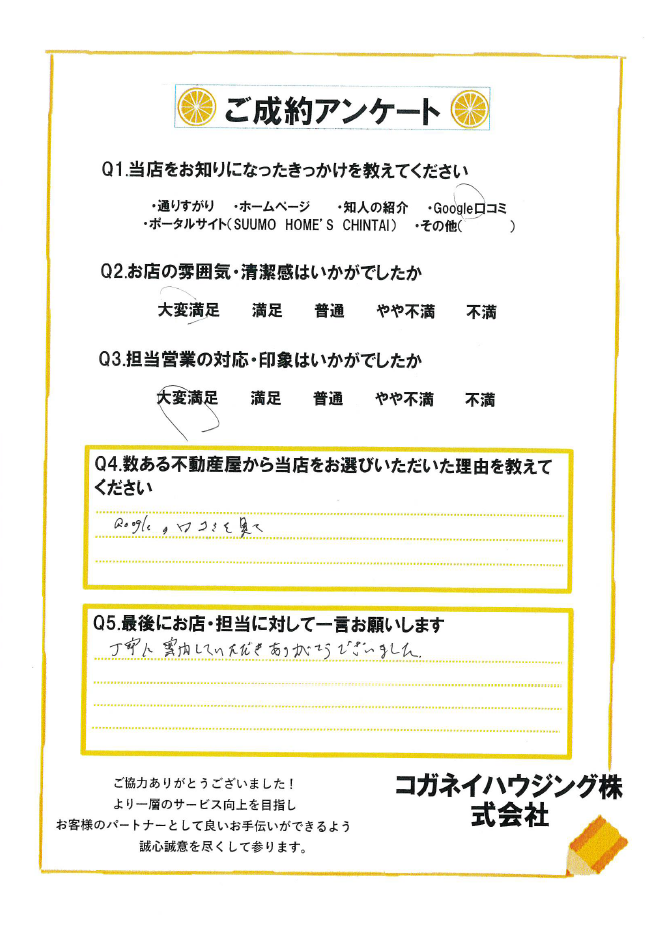 ご成約アンケート
Q1.当店をお知りになったきっかけを教えてください
・通りすがり ・ホームページ ・知人の紹介 ・Google口コミ
・ポータルサイト(SUUMO HOME'S CHINTAI) ・その他( )
Q2.お店の雰囲気・清潔感はいかがでしたか
大変満足 満足 普通 やや不満 不満
Q3.担当営業の対応・印象はいかがでしたか
大変満足 満足 普通 やや不満 不満
Q4.数ある不動産屋から当店をお選びいただいた理由を教えて
ください
Googleの口コミを見て
Q5.最後にお店・担当に対して一言お願いします
丁寧に案内していただきありがとうございました。
ご協力ありがとうございました！
より一層のサービス向上を目指し
お客様のパートナーとして良いお手伝いができるよう
誠心誠意を尽くして参ります。
コガネイハウジング株
式会社